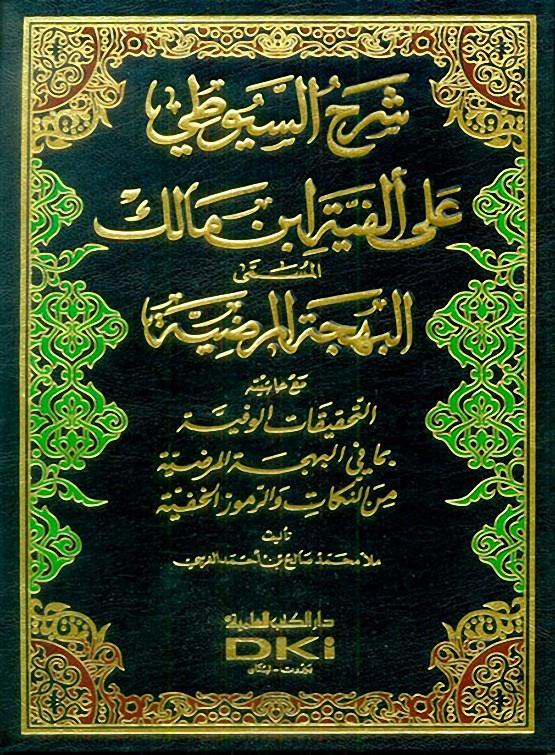 شرح السيوطي
على ألفية ابن مالك
المسمى
البهجة المرضية
مع حاشيته
التحقيقات الوفية
بما في البهجة المرضية
من النكات والرموز الخفية
تأليف
ملا محمد صالح بن أحمد الغرسي
دار الكتب العلمية
DKi
بيروت - لبنان